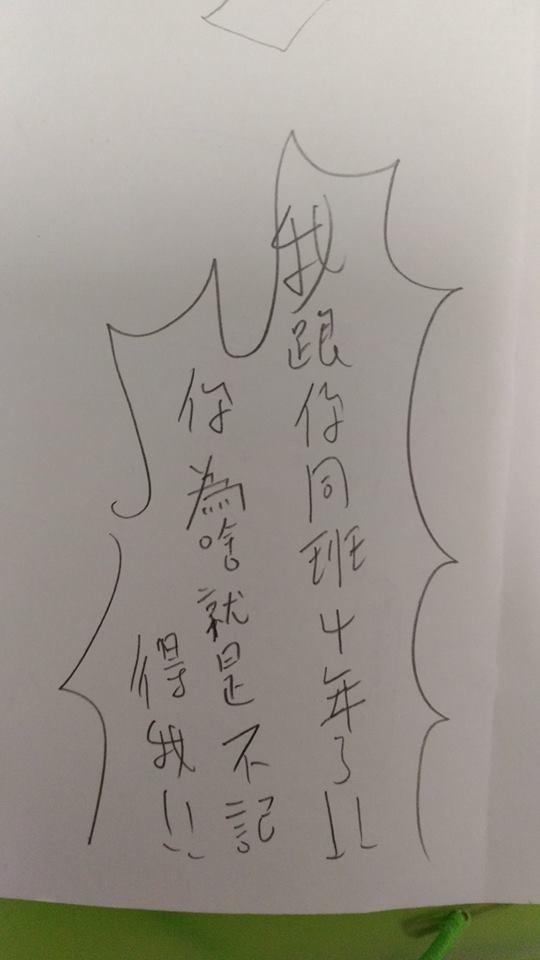 我跟你同班4年了!!
你為啥就是不記
得我!!